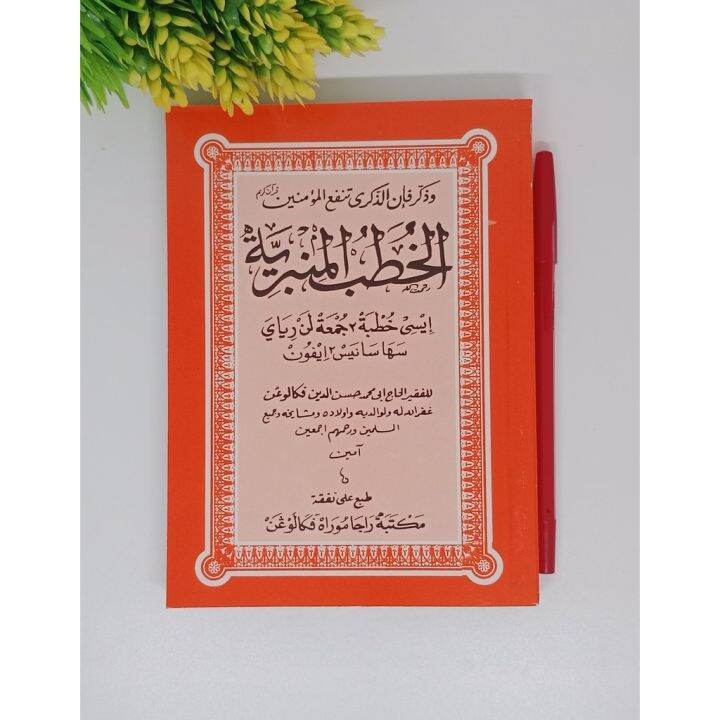 وذكر فإن الذكرى تنفع المؤمنين قرآن كريم
الخُطَبُ المِنْبَرِيَّة
اِيْسِيْ خُطْبَةْ ٢ جُمْعَةْ لَنْ رِيَايَ
سَهَا سَانَيْسْ ٢ اِيْفُوْنْ
للفقير الحاج ابى محمد حسن الدين فكالوڠن
غفر الله له ولوالديه واولاده ومشايخه وجميع
المسلمين ورحمهم اجمعين
آمين
طبع على نفقة
مَكْتَبَةْ رَاجَا مُوْرَاهْ فكَالَوْڠَنْ